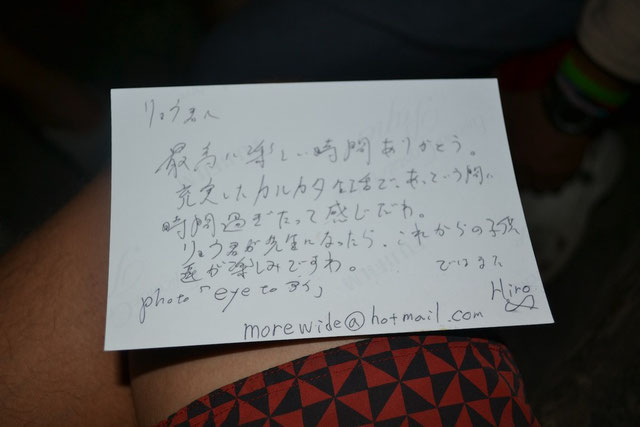 リョウ君へ
最高に楽しい時間ありがとう。
充実したカルカタ生活で、あっという間に
時間過ぎたって感じだわ。
リョウ君が先生になったら、これからの子供
達が楽しみですわ。 ではまた
photo「eye to アイ」 Hiro
morewide@hotmail.com